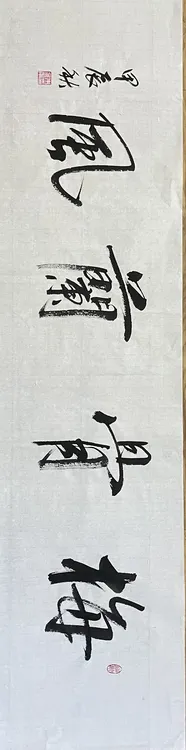 梅骨蘭風
甲辰秋